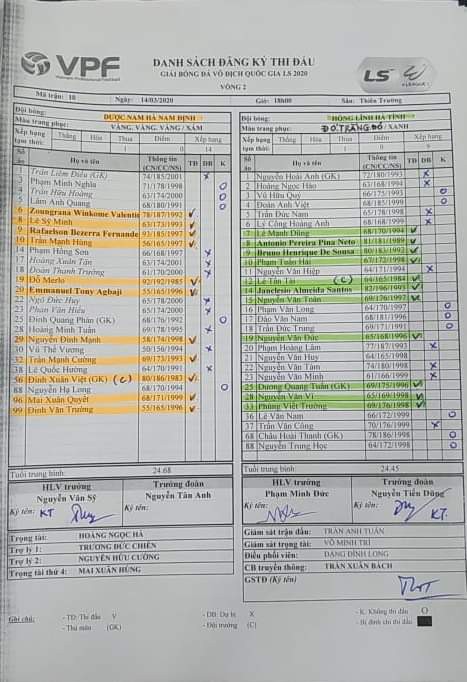 VPF
DANH SÁCH ĐĂNG KÝ THI ĐẤU
GIẢI BÓNG ĐÁ VÔ ĐỊCH QUỐC GIA LS 2020
VÒNG 2
LS
Mã trận: 10 Ngày: 14/03/2020 Giờ: 18h00 Sân: Thiên Trường
Đội bóng: DƯỢC NAM HÀ NAM ĐỊNH
Màu trang phục: VÀNG, VÀNG, VÀNG / XÁM
Xếp hạng tạm thời: Thắng Hòa Thua Điểm Xếp hạng
1 0 14
Số áo Họ và tên Thông tin (CN/CC/NS) TĐ DB K
1 Trần Liêm Điều (GK) 74/185/2001 x
2 Phạm Minh Nghĩa 71/178/1998 O
4 Trần Hữu Hoàng 63/174/2000 O
5 Lâm Anh Quang 68/180/1991 O
6 Zoungrana Winkome Valentin 78/187/1992 ✓
8 Lê Sỹ Minh 63/173/1993 ✓
9 Rafaelson Bezerra Fernande 93/185/1997 ✓
10 Trần Mạnh Hùng 56/165/1997 ✓
14 Phạm Hồng Sơn 66/168/1997 x
17 Hoàng Xuân Tân 63/174/2001 x
18 Đoàn Thanh Trường 61/170/2000 x
19 Đỗ Merlo 92/192/1985 ✓
20 Emmanuel Tony Agbaji 65/165/1996 ✓
22 Ngô Đức Huy 65/178/2000 x
24 Phan Văn Hiếu 54/170/2000 x
25 Đinh Quang Phán (GK) 68/176/1992 O
28 Hoàng Minh Tuấn 69/178/1995 x
29 Nguyễn Đình Mạnh 58/174/1998 ✓
30 Vũ Thế Vương 50/156/1994 x
32 Trần Mạnh Cường 69/173/1993 ✓
38 Lê Quốc Hường 64/170/1991 x
56 Đinh Xuân Việt (GK) (C) 80/186/1983 ✓
88 Nguyễn Hạ Long 68/170/1994 O
96 Mai Xuân Quyết 68/171/1999 ✓
99 Đinh Văn Trường 55/165/1996 ✓
Tuổi trung bình: 24.68
HLV trưởng Trưởng đoàn
Nguyễn Văn Sỹ Nguyễn Tân Anh
Ký tên: KT Ký tên:
Trọng tài: HOÀNG NGỌC HÀ
Trợ lý 1: TRƯƠNG ĐỨC CHIẾN
Trợ lý 2: NGUYỄN HỮU CƯỜNG
Trọng tài thứ 4: MAI XUÂN HÙNG
Đội bóng: HỒNG LĨNH HÀ TĨNH
Màu trang phục: ĐỎ, TRẮNG, ĐỎ / XANH
Xếp hạng tạm thời: Thắng Hòa Thua Điểm Xếp hạng
1 0 9
Số áo Họ và tên Thông tin (CN/CC/NS) TĐ DB K
1 Nguyễn Hoài Anh (GK) 72/180/1993 x
2 Hoàng Ngọc Hào 63/168/1994 x
3 Vũ Hữu Quý 66/175/1993 O
4 Đoàn Anh Việt 68/185/1999 O
5 Trần Đức Nam 65/178/1998 x
6 Lý Công Hoàng Anh 68/168/1999 x
7 Lê Mạnh Dũng 68/170/1994 ✓
8 Antonio Pereira Pina Neto 81/181/1989 ✓
9 Bruno Henrique De Sousa 80/181/1993 ✓
10 Phạm Tuấn Hải 67/172/1998 ✓
11 Nguyễn Văn Hiệp 64/171/1994 x
12 Lê Tấn Tài (C) 64/165/1984 ✓
14 Janclesio Almeida Santos 82/196/1993 ✓
15 Nguyễn Văn Toản 69/176/1997 ✓
16 Phạm Văn Long 64/170/1997 O
17 Đào Văn Nam 68/181/1996 O
18 Trần Đức Trung 69/171/1991 O
19 Nguyễn Văn Đức 65/168/1996 ✓
20 Phạm Hoàng Lâm 77/187/1993 x
21 Nguyễn Văn Huy 64/165/1998
22 Nguyễn Văn Tám 74/180/1998 x
23 Nguyễn Văn Minh 61/166/1999 x
25 Dương Quang Tuấn (GK) 69/175/1996 ✓
28 Nguyễn Văn Vĩ 65/169/1998 ✓
33 Phùng Viết Trường 69/176/1998 ✓
36 Lê Văn Nam 66/172/1999 O
37 Trần Văn Công 70/176/1999 x
68 Châu Hoài Thanh (GK) 78/186/1998 O
88 Nguyễn Trung Học 64/172/1998 O
Tuổi trung bình 24.45
HLV trưởng Trưởng đoàn
Phạm Minh Đức Nguyễn Tiến Dũng
Ký tên: Ký tên: KT.
Giám sát trận đấu: TRẦN ANH TUẤN
Giám sát trọng tài: VÕ MINH TRÍ
Điều phối viên: DẠNG ĐÌNH LONG
CB truyền thông: TRẦN XUÂN BÁCH
GSTĐ (Ký tên)
Ghi chú: - TĐ: Thi đấu V - DB: Dự bị X - K: Không thi đấu O
- Thủ môn (GK) - Đội trưởng (C) - Bị đình chỉ thi đấu